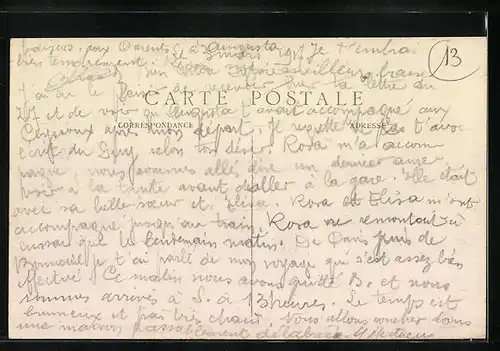 baisers aux Parents, à Augusta
très tendrement. 1917 Je t'embrasse
13
J'ai eu le plaisir de recevoir ta lettre du
27 et de voir qu'Augusta t'avait accompagné aux
CARTE POSTALE
CORRESPONDANCE ADRESSE
après mon départ. Je regrette de pas t'avoir
écrit du selon ton désir. Rosa m'a accom
pagné, nous sommes allés dire un dernier
à la tante avant d'aller à la gare. Elle était
avec sa belle-sœur et Elisa. Rosa et Elisa m'ont
accompagné jusqu'au train. Rosa ne remontait à
que le lendemain matin. De Paris puis de
je t'ai parlé de mon voyage qui s'est assez bien
effectué. Ce matin nous avons quitté B. et nous
sommes arrivés à S. à 13 heures. Le temps est
brumeux et pas très chaud. Nous allons coucher dans
une maison passablement délabrée.